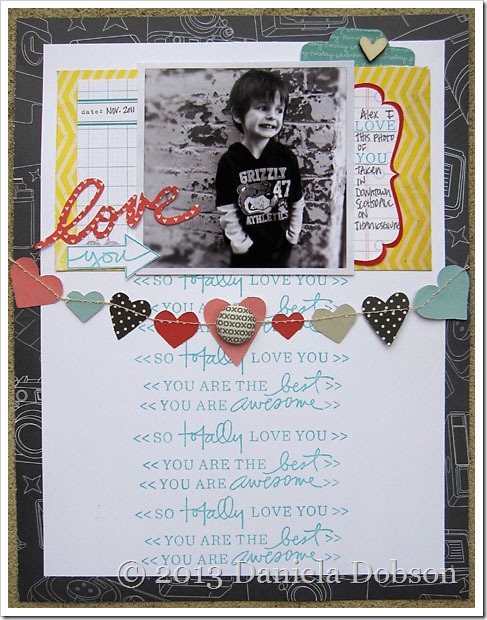 date: NOV. 2011
love
you
GRIZZLY
47
ATHLETICS
ALEX I
LOVE
THIS PHOTO
OF
YOU
TAKEN
IN
DOWNTOWN
SCOTTSDALE
ON
THANKSGIVING
<<SO totally LOVE YOU>>
XOXOXO
<<SO totally LOVE YOU>>
<<YOU ARE THE best>>
<<YOU ARE awesome>>
<<SO totally LOVE YOU>>
<<YOU ARE THE best>>
<<YOU ARE awesome>>
<<SO totally LOVE YOU>>
<<YOU ARE THE best>>
<<YOU ARE awesome>>
© 2013 Daniela Dobson